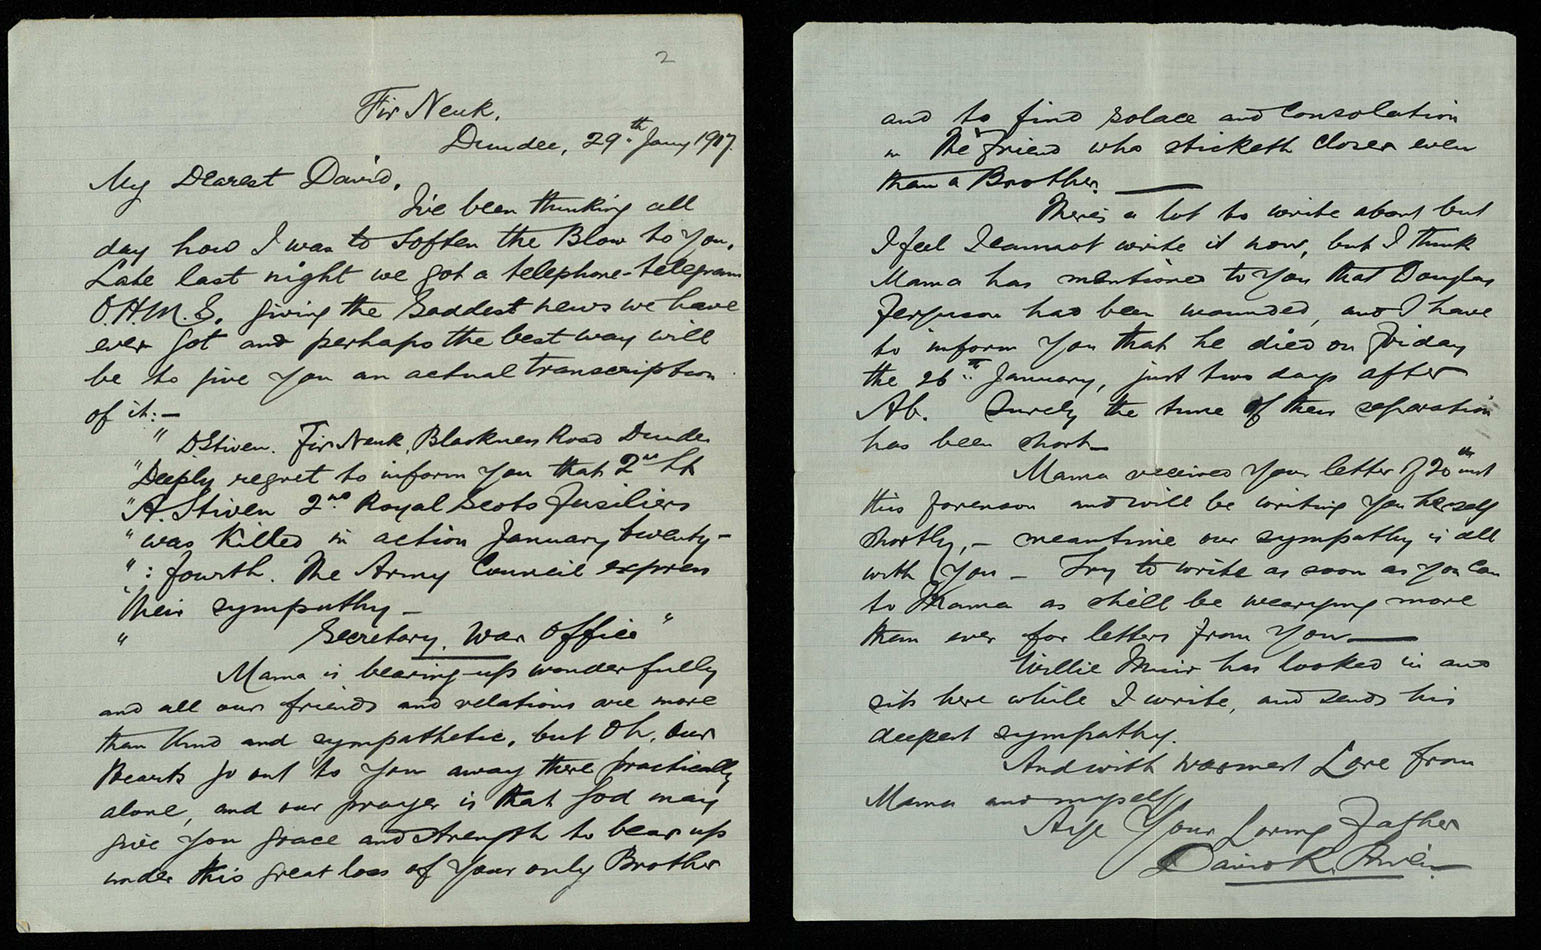 2
Fir Neuk,
Dundee, 29th Jany 1917.
My Dearest David,
I've been thinking all
day how I was to soften the Blow to you.
Late last night we got a telephone-telegram
O.H.M.S. giving the Saddest news we have
ever got and perhaps the best way will
be to give you an actual transcription
of it:-
" D Stiven. Fir Neuk, Blackness Road Dundee
"Deeply regret to inform you that 2nd Lt
"A. Stiven 2nd Royal Scots Fusiliers
"was killed in action January twenty-
": fourth. The Army Council express
"their sympathy-
" Secretary, War Office"
Mama is bearing-up wonderfully
and all our friends and relations are more
than kind and sympathetic, but Oh, Our
Hearts go out to you away there practically
alone, and our prayer is that God may
give you grace and strength to bear up
under this great loss of your only Brother
and to find solace and Consolation
in the friend who sticketh closer even
than a Brother.
There's a lot to write about but
I feel I cannot write it now, but I think
Mama has mentioned to you that Douglas
Ferguson had been wounded, and I have
to inform you that he died on Friday
the 26th January, just two days after
Ab. Surely the time of their separation
has been short-
Mama received your letter of 20th inst
this forenoon and will be writing you herself
shortly,- meantime our sympathy is all
with you - Try to write as soon as you can
to Mama as she'll be wearying more
than ever for letters from you
Willie Muir has looked in and
sits here while I write, and sends his
deepest sympathy.
And with warmest Love from
Mama and myself
Aye Your Loving Father
David K. Stiven